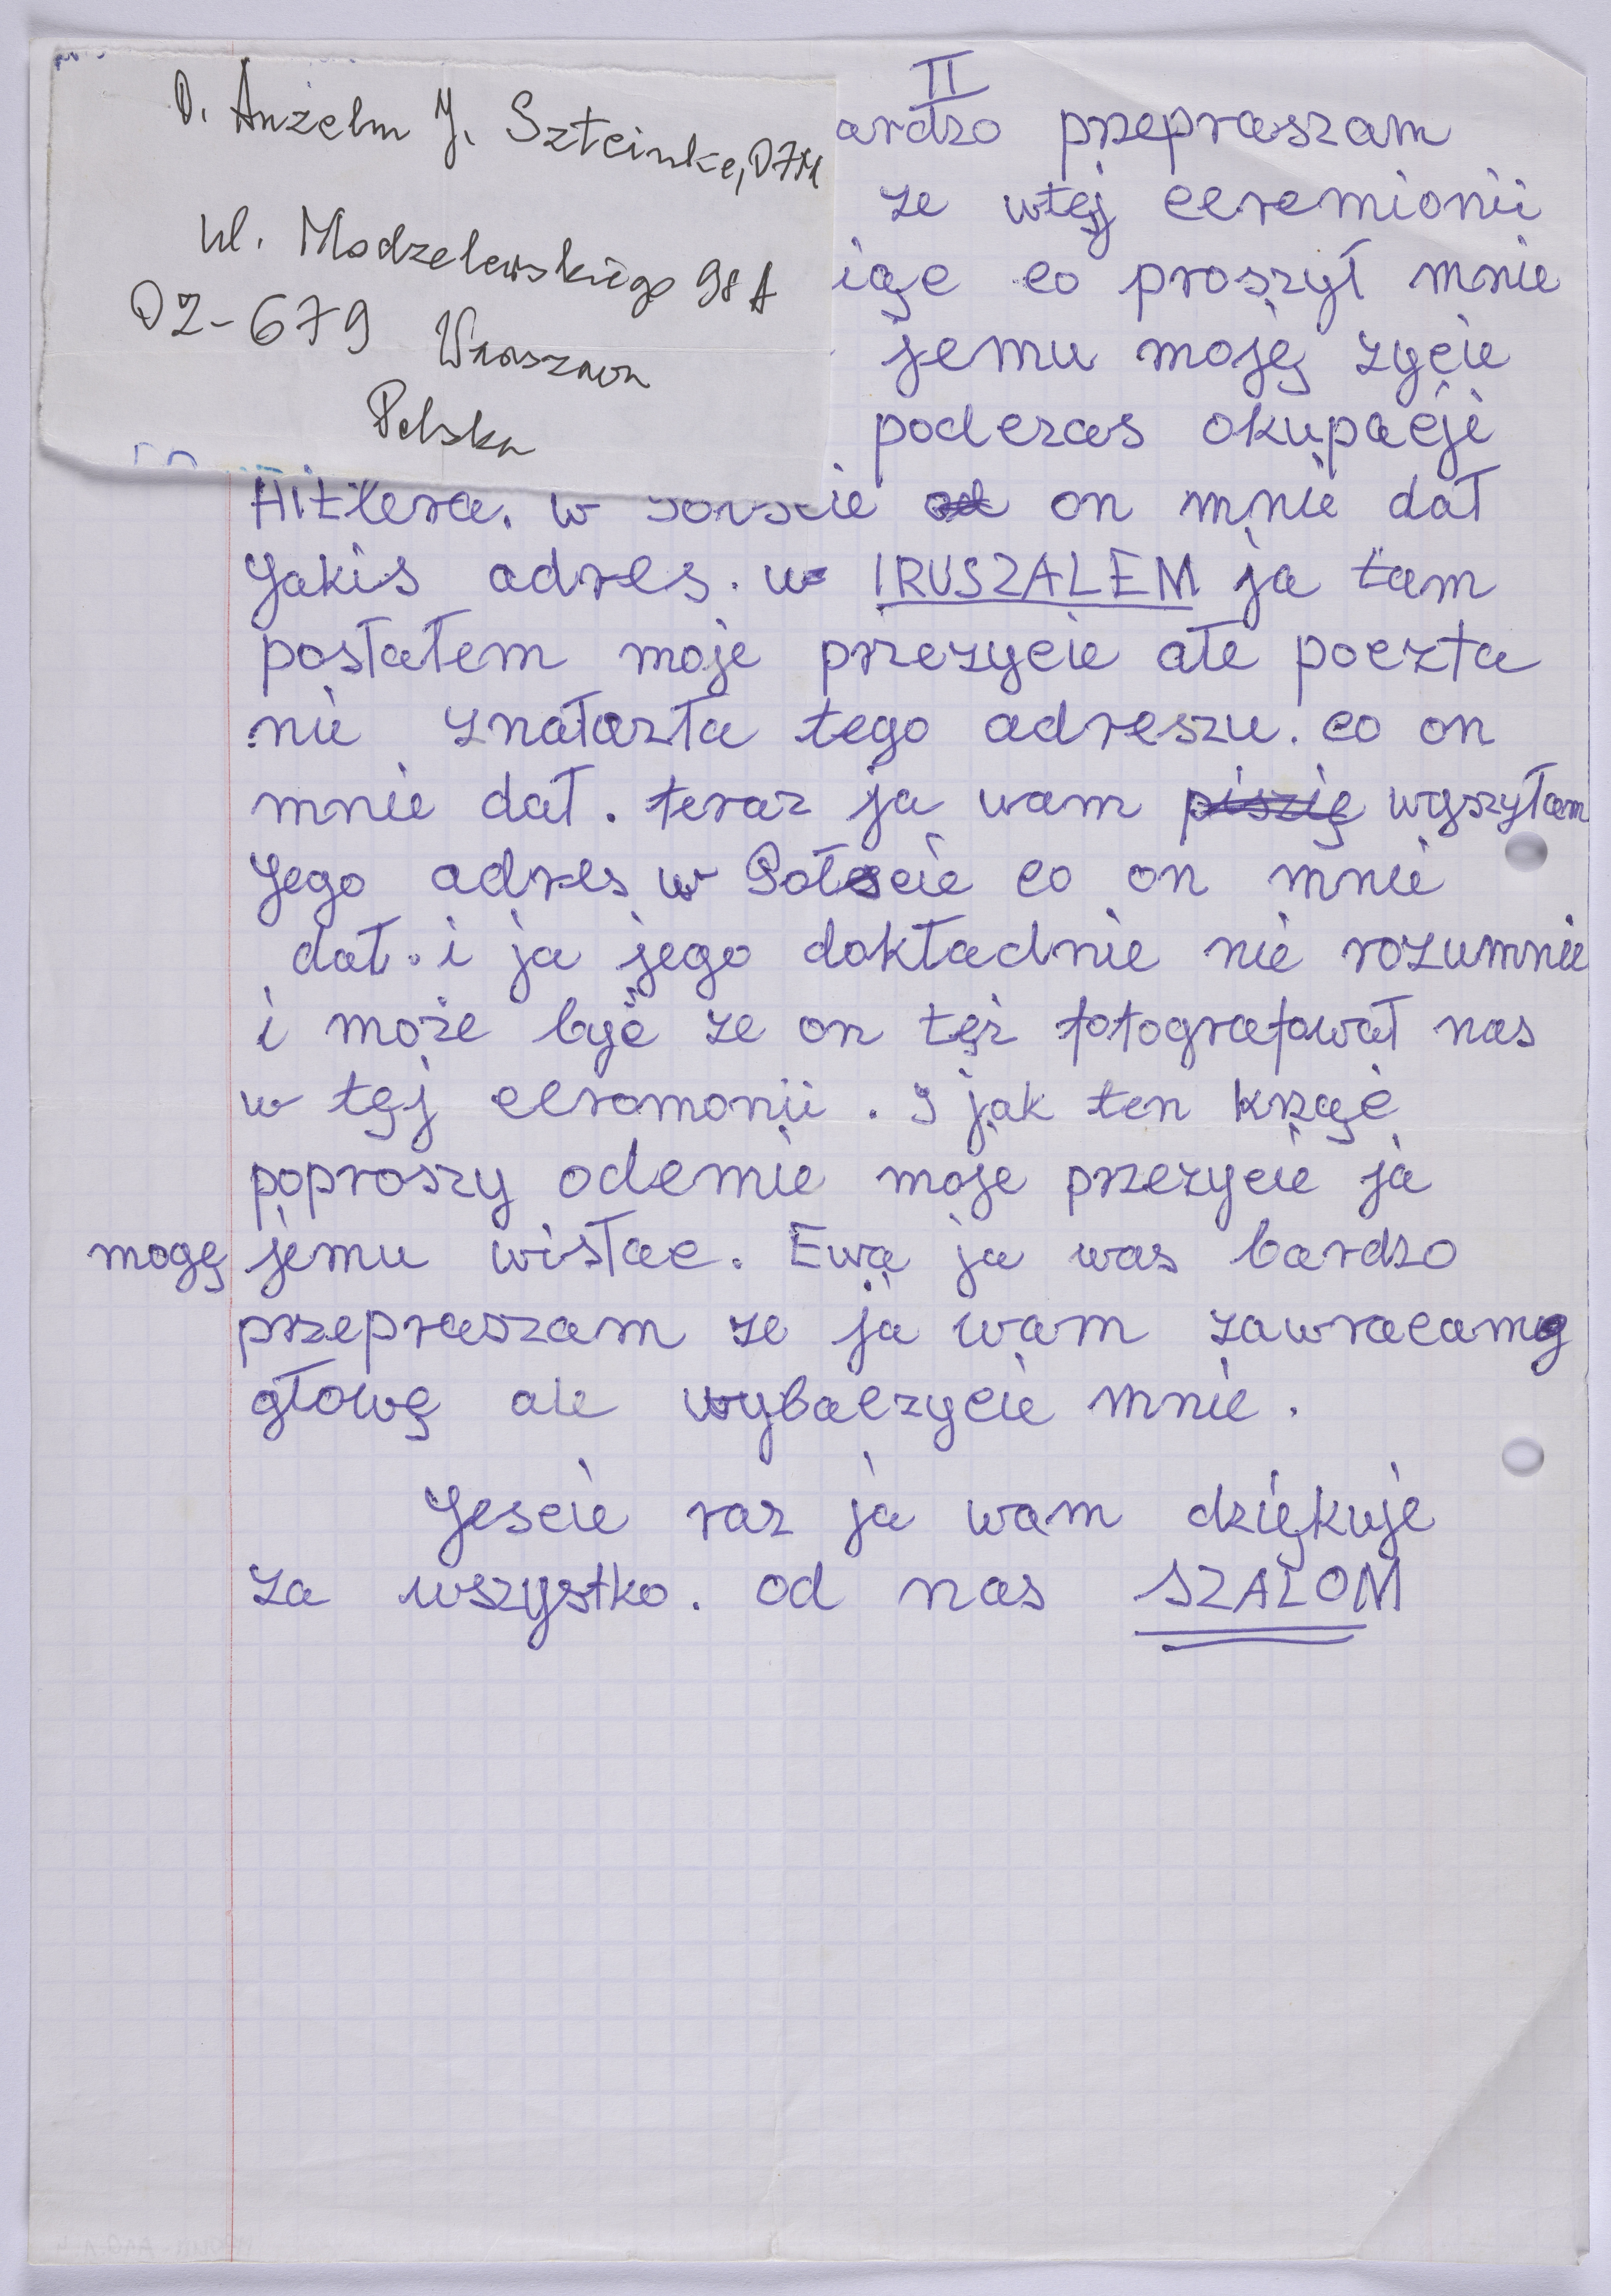 O. Anzelm J. Szteinke, OFM
ul. Modzelewskiego 98 A
02-679 Warszawa
Polska
II
ardzo przepraszam
ze wtęj ceremionii
iąc co proszył mnie
jemu moję zycie
podczas okupacji
Hitlera. w on mnie dał
Jakis adres. w IRUSZALEM ja tam
posłałem moje przezycie ałe poczta
nie znałazła tego adreszu. co on
mnie dał. teraz ja wam piszię wyszyłam
Jego adres w Połscie co on mnie
dał. i ja jego dokładnie nie rozumnie
i może być ze on też fotografował nas
w tęj ceromonii. I jak ten krząc
poproszy odemie moje przezycie ja
mogę jemu wisłac. Ewa ja was bardzo
przepraszam ze ja wam zawracam
głowę ale wybaczycie mnie.
Jescie raz ja wam dziękuje
za wszystko. od nas SZALOM